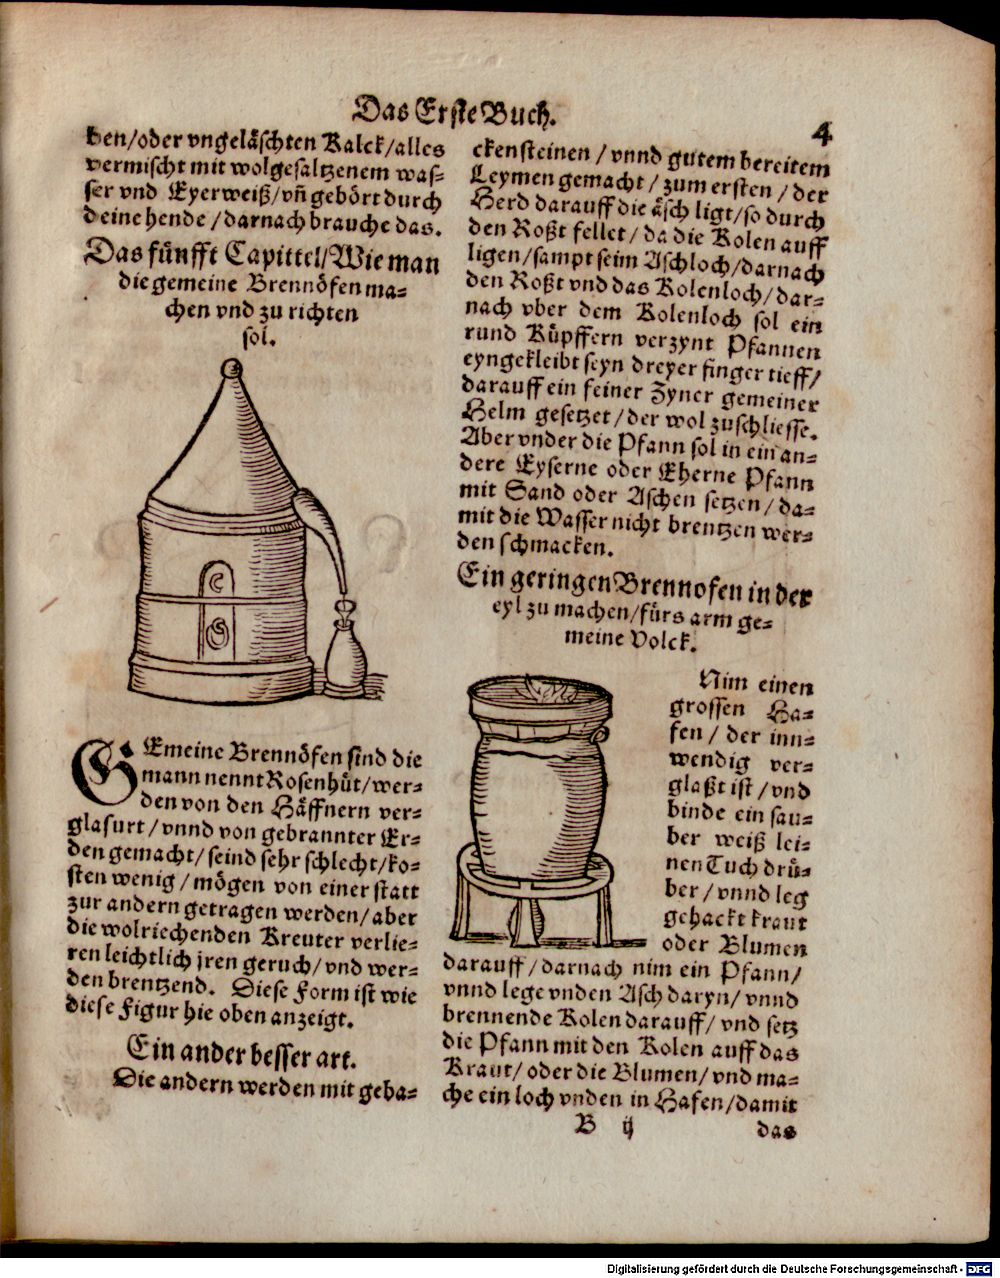 Das Erste Buch.
4
ben/oder vngeläschten Kalck/alles
vermischt mit wolgesaltzenem was-
ser vnd Eyerweiß/vñ gebört durch
deine hende/darnach brauche das.
Das fünfft Capittel/Wie man
die gemeine Brennöfen ma-
chen vnd zu richten
sol.
GEmeine Brennöfen sind die
mann nennt Rosenhüt/wer-
den von den Häffnern ver-
glasurt/vnnd von gebrannter Er-
den gemacht/seind sehr schlecht/ko-
sten wenig/mögen von einer statt
zur andern getragen werden/aber
die wolriechenden Kreuter verlie-
ren leichtlich jren geruch/vnd wer-
den brentzend. Diese Form ist wie
diese Figur hie oben anzeigt.
Ein ander besser art.
Die andern werden mit geba-
ckensteinen/vnnd gutem bereitem
Leymen gemacht/zum ersten/der
Herd darauff die äsch ligt/so durch
den Roßt fellet/da die Kolen auff
ligen/sampt seim Aschloch/darnach
den Roßt vnd das Kolenloch/dar-
nach vber dem Kolenloch sol ein
rund Küpffern verzynt Pfannen
eyngekleibt seyn dreyer finger tieff/
darauff ein feiner Zyner gemeiner
Helm gesetzet/der wol zuschliesse.
Aber vnder die Pfann sol in ein an-
dere Eyserne oder Eherne Pfann
mit Sand oder Aschen setzen/da-
mit die Wasser nicht brentzen wer-
den schmacken.
Ein geringen Brennofen in der
eyl zu machen/fürs arm ge-
meine Volck.
Nim einen
grossen Ha-
fen/der inn-
wendig ver-
glaßt ist/vnd
binde ein sau-
ber weiß lei-
nen Tuch drü-
ber/vnnd leg
gehackt kraut
oder Blumen
darauff/darnach nim ein Pfann/
vnnd lege vnden Asch daryn/vnnd
brennende Kolen darauff/vnd setz
die Pfann mit den Kolen auff das
Kraut/oder die Blumen/vnd ma-
che ein loch vnden in Hafen/damit
B ij
das
Digitalisierung gefördert durch die Deutsche Forschungsgemeinschaft - DFG